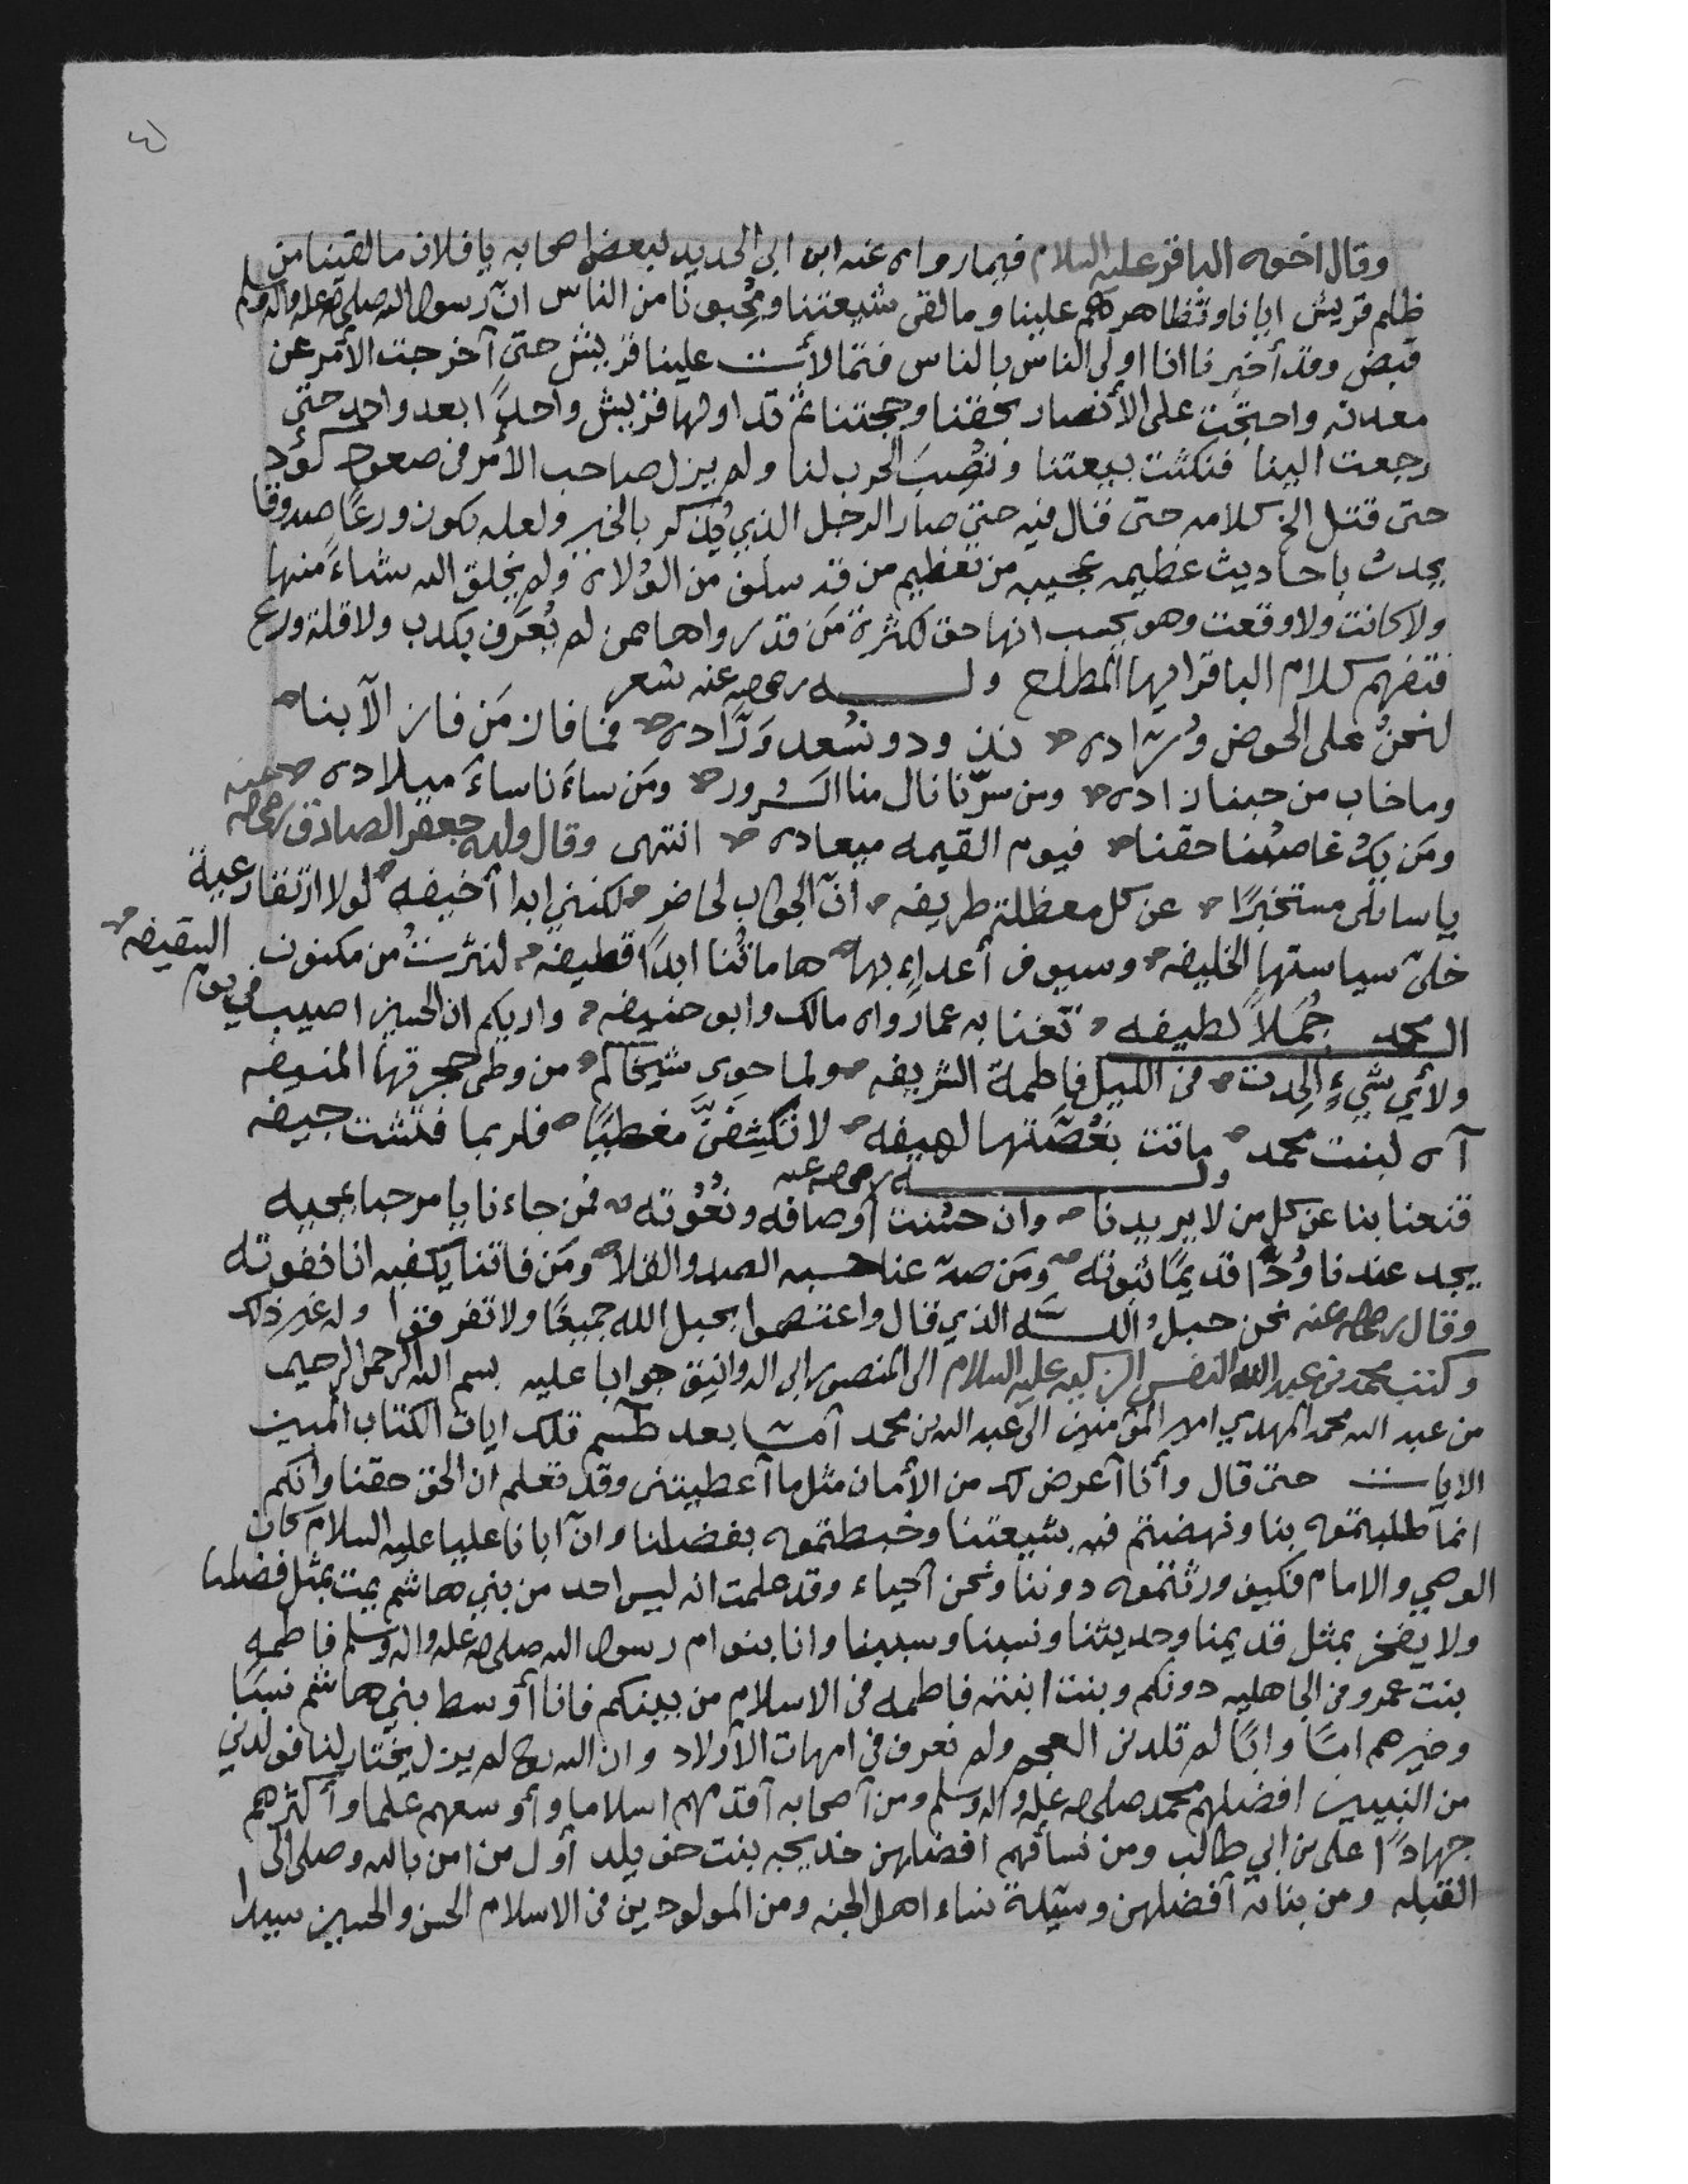 وقال اخوه الباقر عليه السلام فيما رواه عنه ابن ابي الحديد لبعض اصحابه يا فلان ما لقينا من
ظلم قريش ايانا وتظاهرهم علينا وما لقى شيعتنا ومُحبونا من الناس انّ رسول الله صلى الله عليه واله وسلم
قبض وقد أخبرنا انا اولى الناس بالناس فتمالأت علينا قريش حتى أخرجت الأمر عن
معدنه واحتجت على الأنصار بحقنا وحجتنا ثم تداولها قريش واحدًا بعد واحد حتى
رجعت الينا فنكثت بيعتنا ونُصِبَ الحرب لنا ولم يزل صاحب الأمر في صعود كؤد
حتى قتل الخ كلامه حتى قال فيه حتى صار الرجل الذي يُذكر بالخير ولعله يكون ورعًا صدوقا
يحدث باحاديث عظيمه عجيبه من تعظيم من قد سلف من الوُلاه ولم يخلق الله شيئاً منها
ولا كانت ولا وقعت وهو يحسب انها حق لكثرة مَن قد رواها ممن لم يُعرَف بكدب ولا قلة ورع
فتفهم كلام الباقر ايها المطلع وله رضي الله عنه شعر
لنحنُ على الحوض وُرّاده نذود ونُسعد وَرّاده فما فاز مَن فاز الّا بنا
وما خاب من حبنا زاده ومن سرّنا نال منا السرور ومَن ساءَنا ساءَ ميلاده
ومَن يكُ غاصبُنا حقنا فيوم القيمه ميعاده انتهى وقال ولده جعفر الصادق رضي الله عنه
يا سائلى مستخبرًا عن كل معظلةٍ طريفه انّ الجواب لحاضر لكنني ابدا أخيفه لولا ارتفاد عية
خلىّ سياستها الخليفه وسيوف أعداءٍ بها هاماتُنا ابدًا قطيفه لنثرتُ من مكنون
ال محمد جُمَلاً لطيفه تغنا به عما رواه مالك وابو حنيفه واريكم ان الحسين اصيب في يوم السقيفه
ولأي شيءٍ اُلحِدت في الليل فاطمة الشريفه ولما حوى شيخاكم من وطي حجرتها المنيفه
آه لبنت محمد ماتت بغُصّتها لهيفه لا تكشِفَنّ مغطيًا فلربما فتشت جيفه
وله رضي الله عنه
قنعنا بنا عن كل من لا يريدنا وان حسُنت أوصافه ونُعُوته فمن جاءنا يا مرحبا بمجيه
يجد عندنا وُدًّا قديمًا ثبوته ومَن صدّ عنا حسبه الصد والقلا ومَن فاتنا يكفيه انا نفوته
وقال رضي الله عنه نحن حبل الله الذي قال واعتصموا بحبل الله جميعًا ولا تفرقوا وله غير ذلك
وكتب محمد بن عبد الله النفس الزكيه عليه السلام الى المنصور ابي الدوانيق جوابا عليه بسم الله الرحمن الرحيم
من عبد الله محمد المهدي امير المؤمنين الى عبد الله بن محمد أمّا بعد طسم تلك ايات الكتاب المبين
الايات حتى قال وأنا أعرض لك من الأمان مثل ما أعطيتنى وقد تعلم ان الحق حقنا وأنكم
انما طلبتموه بنا ونهضتم فيه بشيعتنا وخبطتموه بفضلنا وانّ ابانا عليا عليه السلام كان
الوصي والامام فكيف ورثتموه دوننا ونحن أحياء وقد علمت انه ليس احد من بني هاشم يمت بمثل فضلنا
ولا يفخر بمثل قديمنا وحديثنا ونسبنا وسببنا وانا بنو ام رسول الله صلى الله عليه واله وسلم فاطمه
بنت عمرو في الجاهليه دونكم وبنت ابنته فاطمه في الاسلام من بينكم فانا أوسط بني هاشم نسبًا
وخيرهم امًا وابًا لم تلدني العجم ولم تعرف فى امهات الأولاد وان الله تع لم يزل يختار لنا فولدني
من النبيين افضلهم محمد صلى الله عليه واله وسلم ومن أصحابه أقدمهم اسلاما وأوسعهم علما وأكثرهم
جهادًا على بن ابي طالب ومن نسأئهم افضلهن خديجه بنت خويلد أول من امن بالله وصلى الى
القبله ومن بناته أفضلهن وسيّدة نساء اهل الجنه ومن المولودين في الاسلام الحسن والحسين سيدا